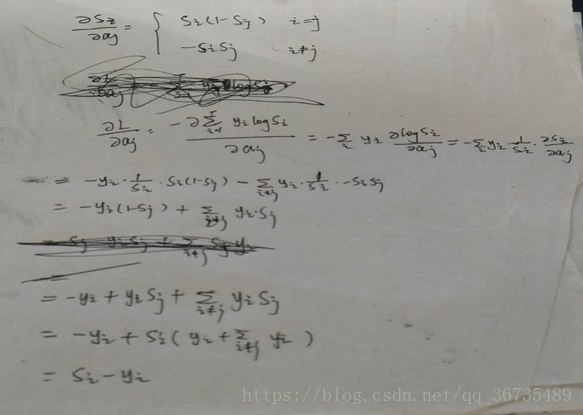 ∂Si/∂aj = { Si(1-Sj) i=j
-SiSj i≠j
∂L/∂aj = -∂Σ yi log Si / ∂aj = -Σi yi ∂log Si/∂aj = -Σi yi 1/Si · ∂Si/∂aj
= -yi · 1/Si · Si(1-Sj) - Σi≠j yi · 1/Si · -SiSj
= -yi(1-Sj) + Σi≠j yi·Sj
= -yi + yiSj + Σi≠j yiSj
= -yi + Si(yi + Σi≠j yi)
= Si - yi
https://blog.csdn.net/qq_36735489